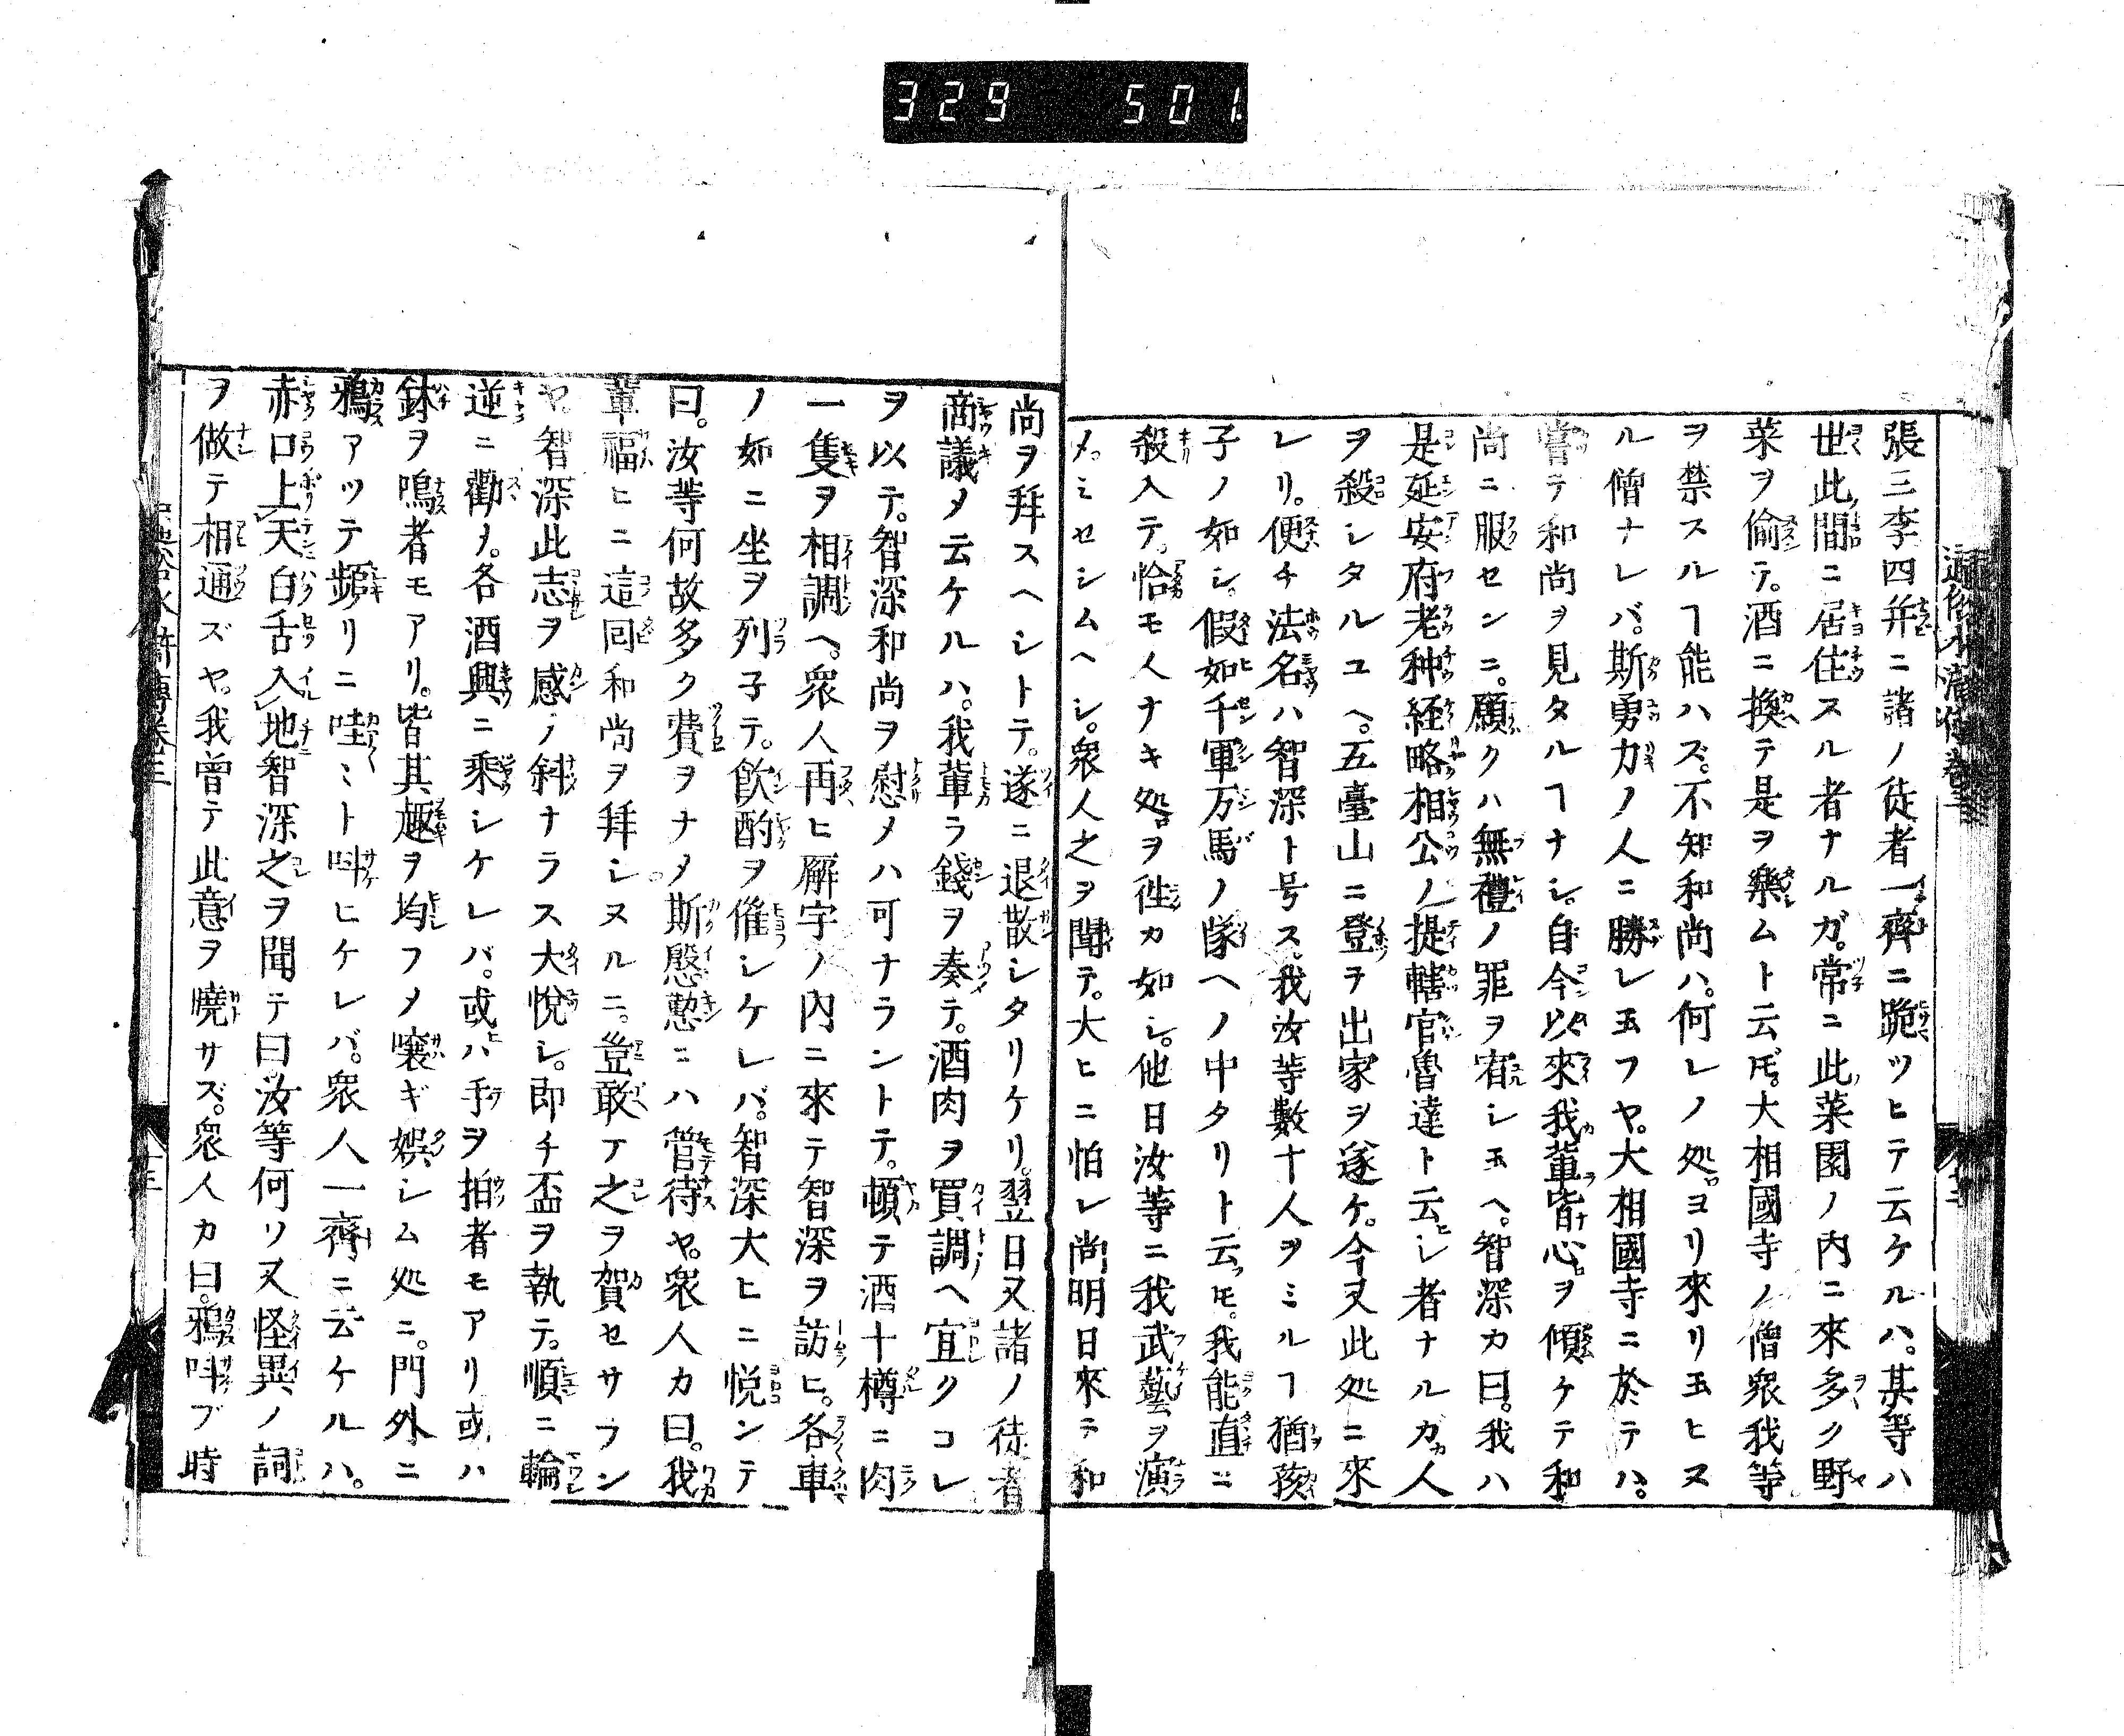 329 501
張三李四并ニ諸ノ徒者一齊ニ跪ツヒテ云ケルハ。某等ハ
世此間ニ居住スル者ナルガ。常ニ此菜園ノ内ニ來多ク野
菜ヲ偷テ。酒ニ換テ是ヲ樂ムト云𪜈。大相國寺ノ僧衆我等
ヲ禁スルヿ能ハズ。不知和尚ハ。何レノ処ヨリ來リ玉ヒヌ
ル僧ナレバ。斯勇力ノ人ニ勝レ玉フヤ。大相國寺ニ於テハ。
嘗テ和尚ヲ見タルヿナシ。自今以來我輩皆心ヲ傾ケテ和
尚ニ服センニ。願クハ無禮ノ罪ヲ宥シ玉ヘ。智深カ曰。我ハ
是延安府老种経略相公ノ提轄官魯達ト云シ者ナルカ。人
ヲ殺シタルユヘ。五臺山ニ登ヲ出家ヲ遂ケ。今又此処ニ來
レリ。便チ法名ハ智深ト号ス。我汝等數十人ヲミルヿ猶孩
子ノ如シ。假如千軍万馬ノ隊ヘノ中タリト云𪜈。我能直ニ
殺入テ。恰モ人ナキ処ヲ徃カ如シ。他日汝等ニ我武藝ヲ演
メミセシムヘシ。衆人之ヲ聞テ。大ヒニ怕レ尚明日來テ和
尚ヲ拜スヘシトテ。遂ニ退散シタリケリ。翌日又諸ノ徒者
商議メ云ケルハ。我輩ラ錢ヲ奏テ。酒肉ヲ買調ヘ宜クコレ
ヲ以テ。智深和尚ヲ慰メハ可ナラントテ。頓テ酒十樽ニ肉
一隻ヲ相調ヘ。衆人再ヒ廨宇ノ内ニ來テ智深ヲ訪ヒ。各車
ノ如ニ坐ヲ列子テ。飲酌ヲ催シケレバ。智深大ヒニ悦ンテ
曰。汝等何故多ク費ヲナメ。斯慇懃ニハ管待ヤ。衆人カ曰。我
輩福ヒニ這回和尚ヲ拜シヌルニ。豈敢テ之ヲ賀セサラン
ヤ。智深此志ヲ感ノ斜ナラス大悦シ。即チ盃ヲ執テ。順ニ輪
逆ニ勸メ。各酒興ニ乘シケレバ。或ハ手ヲ拍者モアリ或ハ
鉢ヲ鳴者モアリ。皆其趣ヲ均フメ嚷ギ娯シム処ニ。門外ニ
鴉アツテ頻リニ哇ミト呌ヒケレバ。衆人一齊ニ云ケルハ。
赤口上天白舌入地智深之ヲ聞テ曰。汝等何ソ又怪異ノ詞
ヲ做テ相通ズヤ。我曾テ此意ヲ曉サズ。衆人カ曰。鴉呌ブ時